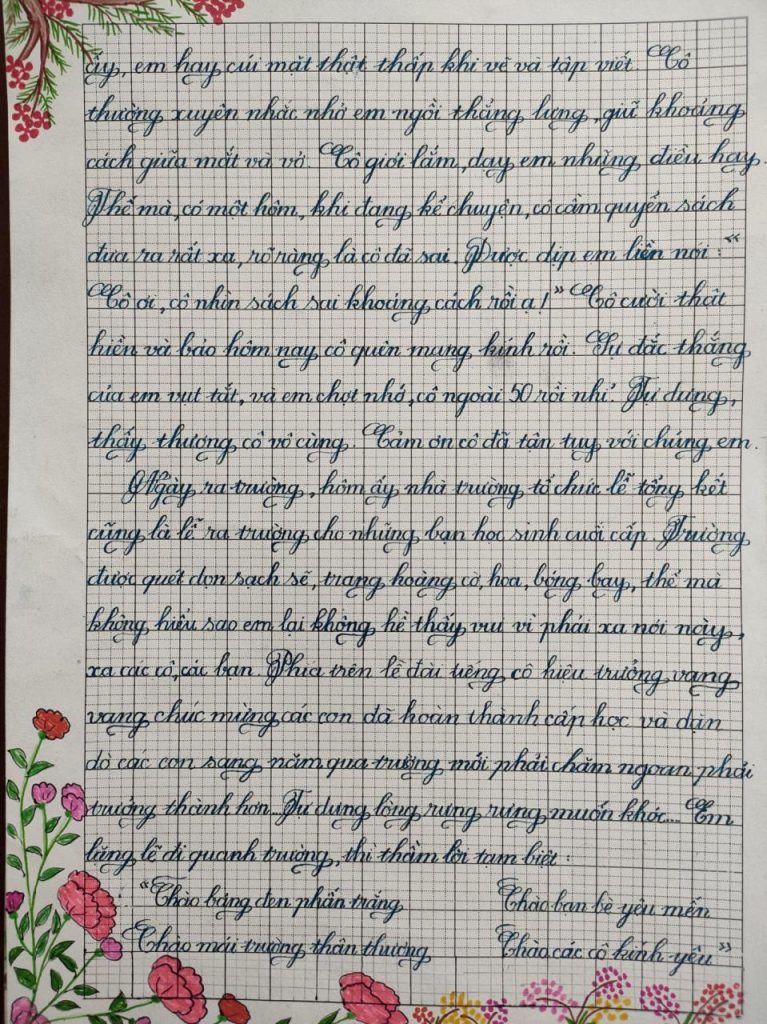 ấy, em hay cúi mặt thật thấp khi vẽ và tập viết. Cô
thường xuyên nhắc nhở em ngồi thẳng lưng, giữ khoảng
cách giữa mắt và vở. Cô giỏi lắm, dạy em những điều hay.
Thế mà, có một hôm, khi đang kể chuyện, cô cầm quyển sách
đưa ra rất xa, rõ ràng là cô đã sai. Được dịp em liền nói: "
"Cô ơi, cô nhìn sách sai khoảng cách rồi ạ!" Cô cười thật
hiền và bảo hôm nay cô quên mang kính rồi. Tự đắc thắng
của em vụt tắt, và em chợt nhớ, cô ngoài 50 rồi nhỉ. Tự dưng,
thấy thương cô vô cùng. Cảm ơn cô đã tận tụy với chúng em.
Ngày ra trường, hôm ấy nhà trường tổ chức lễ tổng kết
cũng là lễ ra trường cho những bạn học sinh cuối cấp. Trường
được quét dọn sạch sẽ, trang hoàng cờ, hoa, bóng bay, thế mà
không hiểu sao em lại không hề thấy vui vì phải xa nơi này,
xa các cô, các bạn. Phía trên lễ đài tiếng cô hiệu trưởng vang
vang chúc mừng các con đã hoàn thành cấp học và dặn
dò các con sang năm qua trường mới phải chăm ngoan phải
trưởng thành hơn. Tự dưng lòng rưng rưng muốn khóc... Em
lặng lẽ đi quanh trường, thì thầm lời tạm biệt:
"Chào bảng đen phấn trắng Chào bạn bè yêu mến
Chào mái trường thân thương Chào các cô kính yêu"